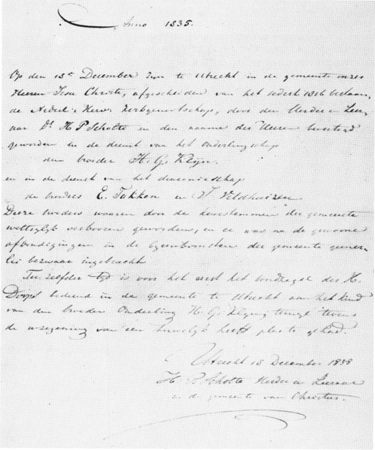 Anno 1835.
Op den 13e December zijn te Utrecht in de gemeente onzes
Heeren Jesu Christi, afgescheiden van het sedert 1816
de Nederl. Herv. Kerkgenootschap, door den Herder en Leer
aar Ds H. P. Scholte en den naam des Heeren bevestigd
geworden in de dienst van het ouderlingschap
den broeder H. G. Klijn
en in de dienst van het diaconieschap
de broeders E. Fokken en J. Veldhuizen
Deeze broeders waaren door de leden der gemeente
wettelijk verkooren geworden, en er was na de gewoone
afkondigingen in de bijeenkomsten der gemeente geener
lei bezwaar ingebracht
Ter zelfder tijd is voor het eerst het bondzegel des H.
Doops bediend in de gemeente te Utrecht aan het kind
van den broeder Ouderling H. G. Klijn terwijl tevens
de inzegening van een huwelijk heeft plaats gehad.
Utrecht 13 December 1835
H. P. Scholte Herder en Leeraar
in de gemeente van Christus.